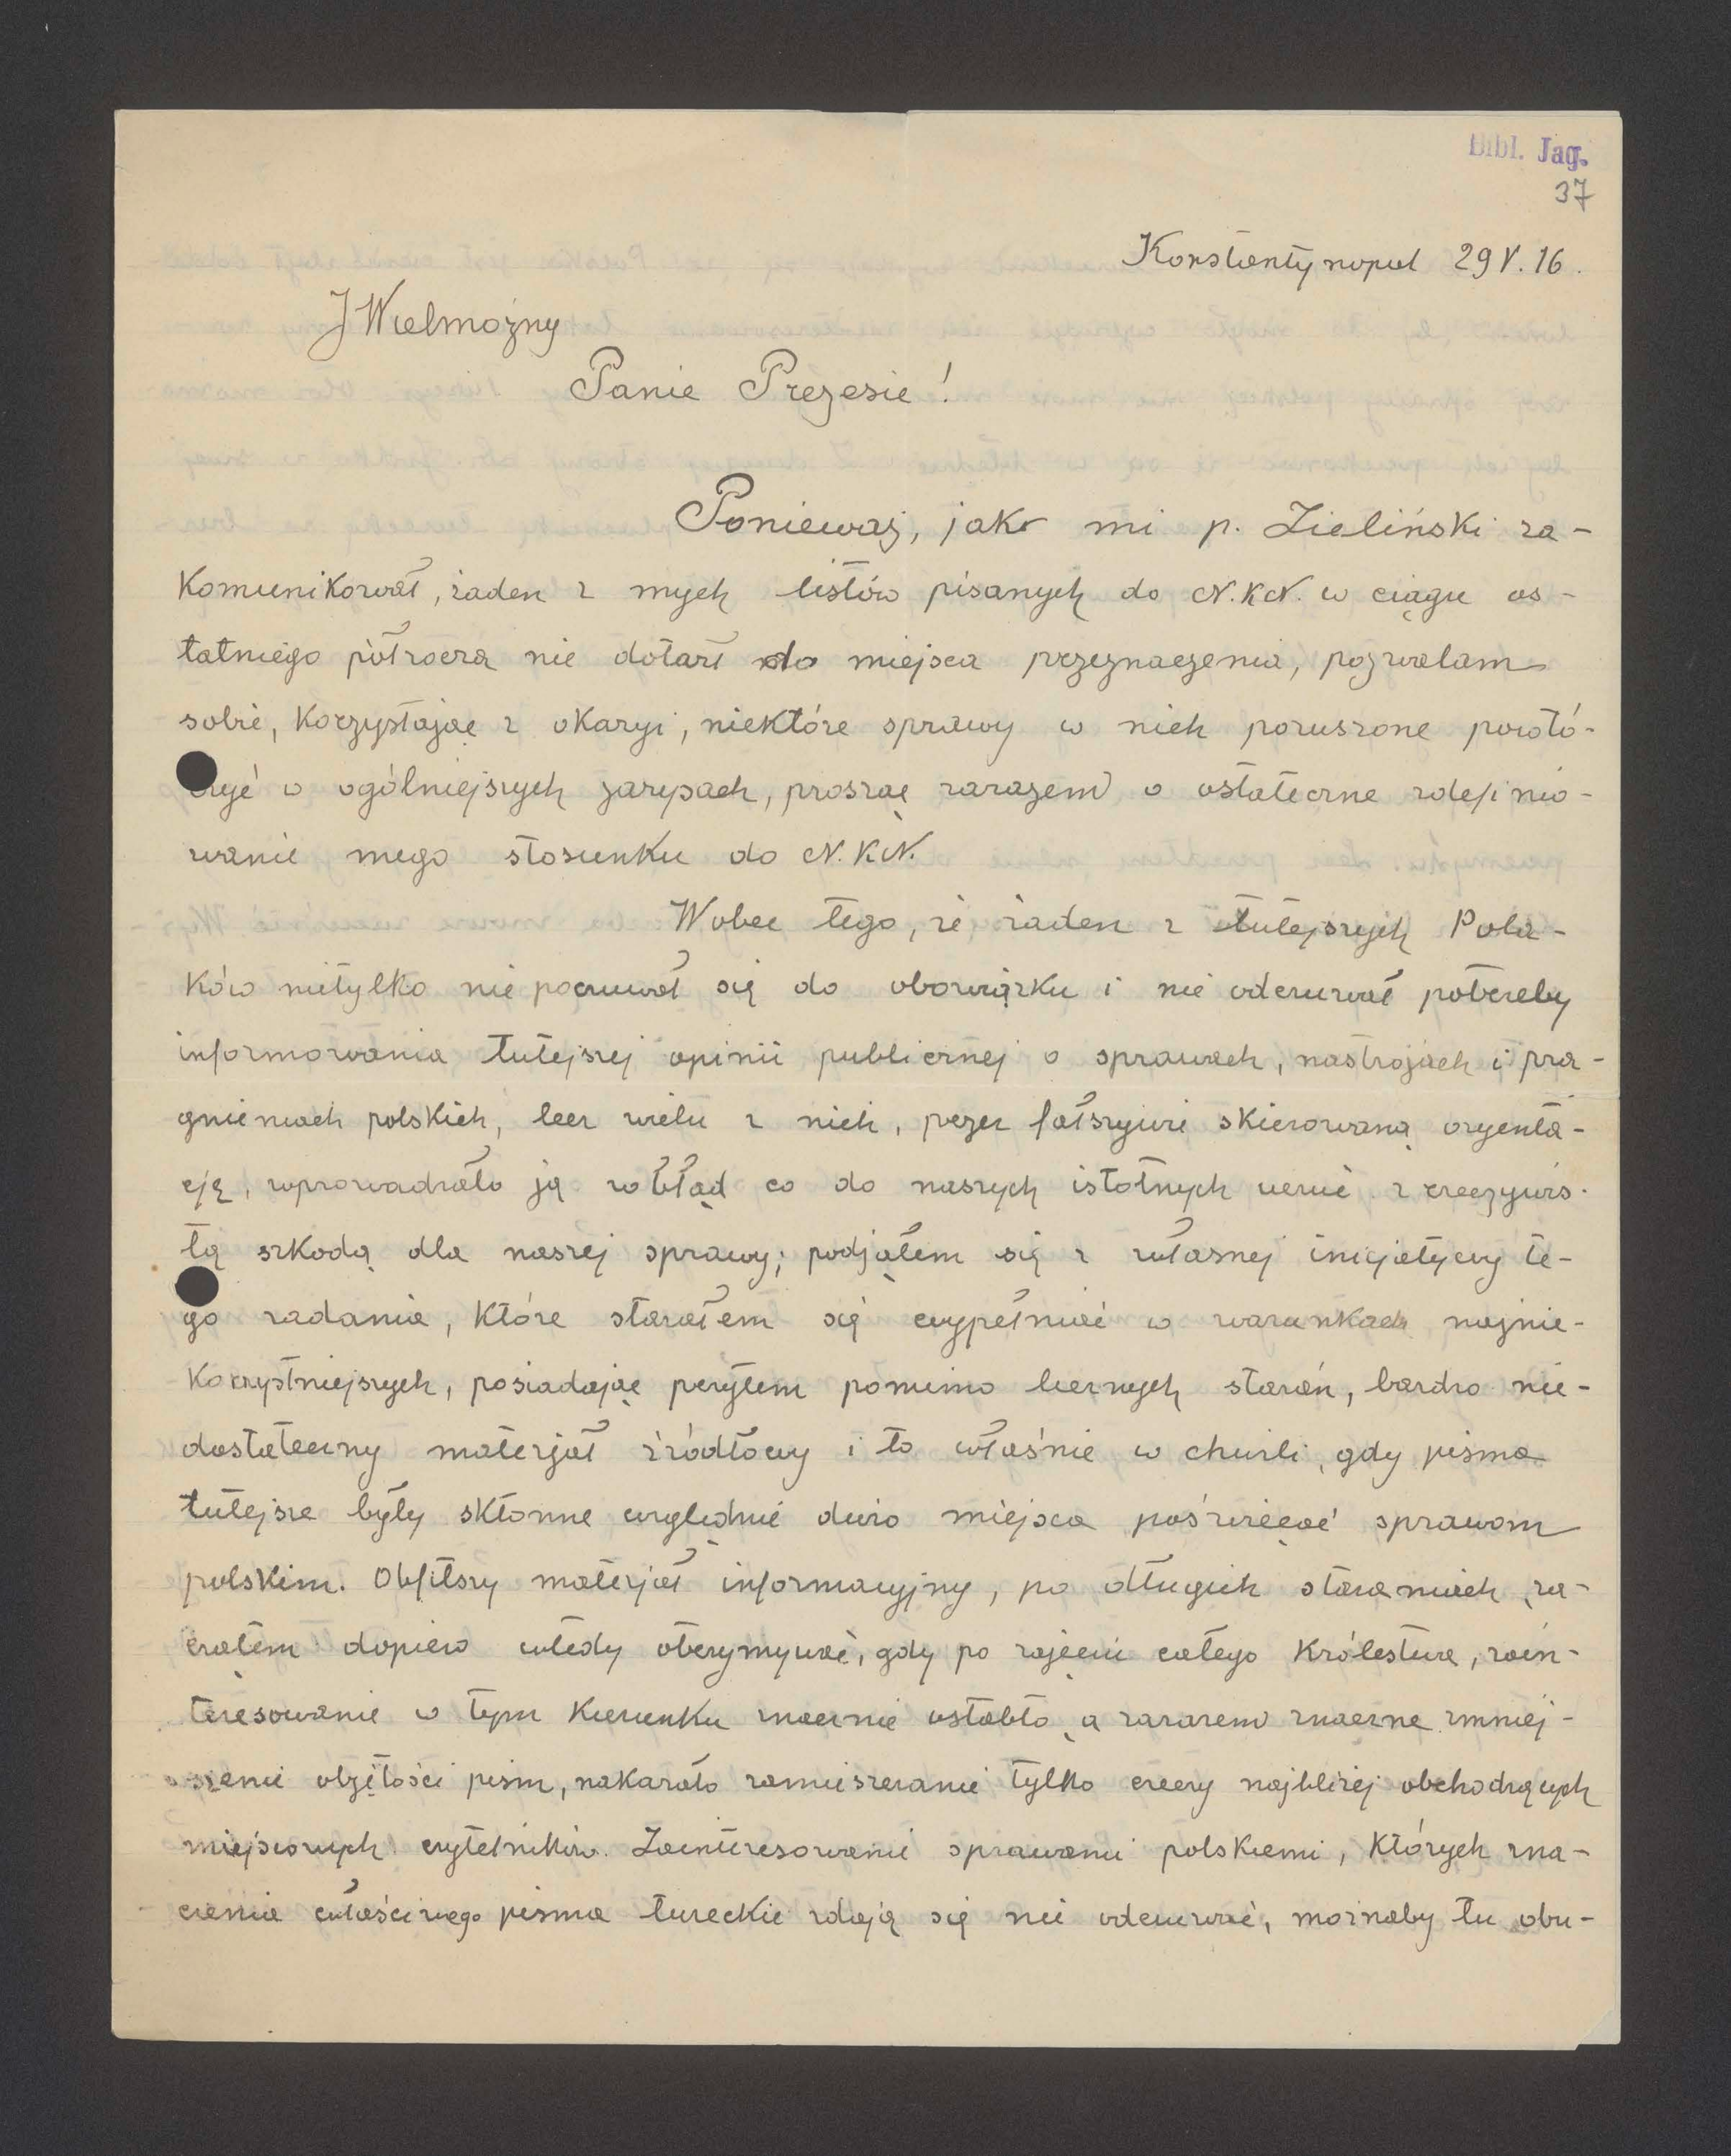 Bibl. Jag.
37
Konstantynopol 29 V. 16.
JWielmożny
Panie Prezesie!
Ponieważ, jak mi p. Zieliński za-
komunikował, żaden z mych listów pisanych do N.K.N. w ciągu os-
tatniego półrocza nie dotarł do miejsca przeznaczenia, pozwalam
sobie, korzystając z okazyi, niektóre sprawy w nich poruszone powtó-
rzyć w ogólniejszych zarysach, prosząc zarazem o ostateczne zdefinio-
wanie mego stosunku do N.K.N.
Wobec tego, że żaden z tutejszych Pola-
ków nietylko nie poczuwał się do obowiązku i nie odczuwał potrzeby
informowania tutejszej opinii publicznej o sprawach, nastrojach i pra-
gnieniach polskich, lecz wielu z nich, przez fałszywie skierowaną oryenta-
cję, wprowadzało ją w błąd co do naszych istotnych uczuć z rzeczywis-
tą szkodą dla naszej sprawy; podjąłem się z własnej inicjatywy te-
go zadania, które starałem się wypełniać w warunkach najnie-
korzystniejszych, posiadając przytem pomimo licznych starań, bardzo nie-
dostateczny materjał źródłowy i to właśnie w chwili, gdy pisma
tutejsze były skłonne względnie dużo miejsca poświęcać sprawom
polskim. Obfitszy materjał informacyjny, po długich staraniach, za-
cząłem dopiero wtedy otrzymywać, gdy po zajęciu całego Królestwa, zain-
teresowanie w tym kierunku znacznie osłabło a zarazem znaczne zmniej-
szenie objętości pism, nakazało zamieszczanie tylko rzeczy najbliżej obchodzących
miejscowych czytelników. Zainteresowanie sprawami polskiemi, których zna-
czenia właściwego pisma tureckie zdają się nie odczuwać, możnaby tu obu-